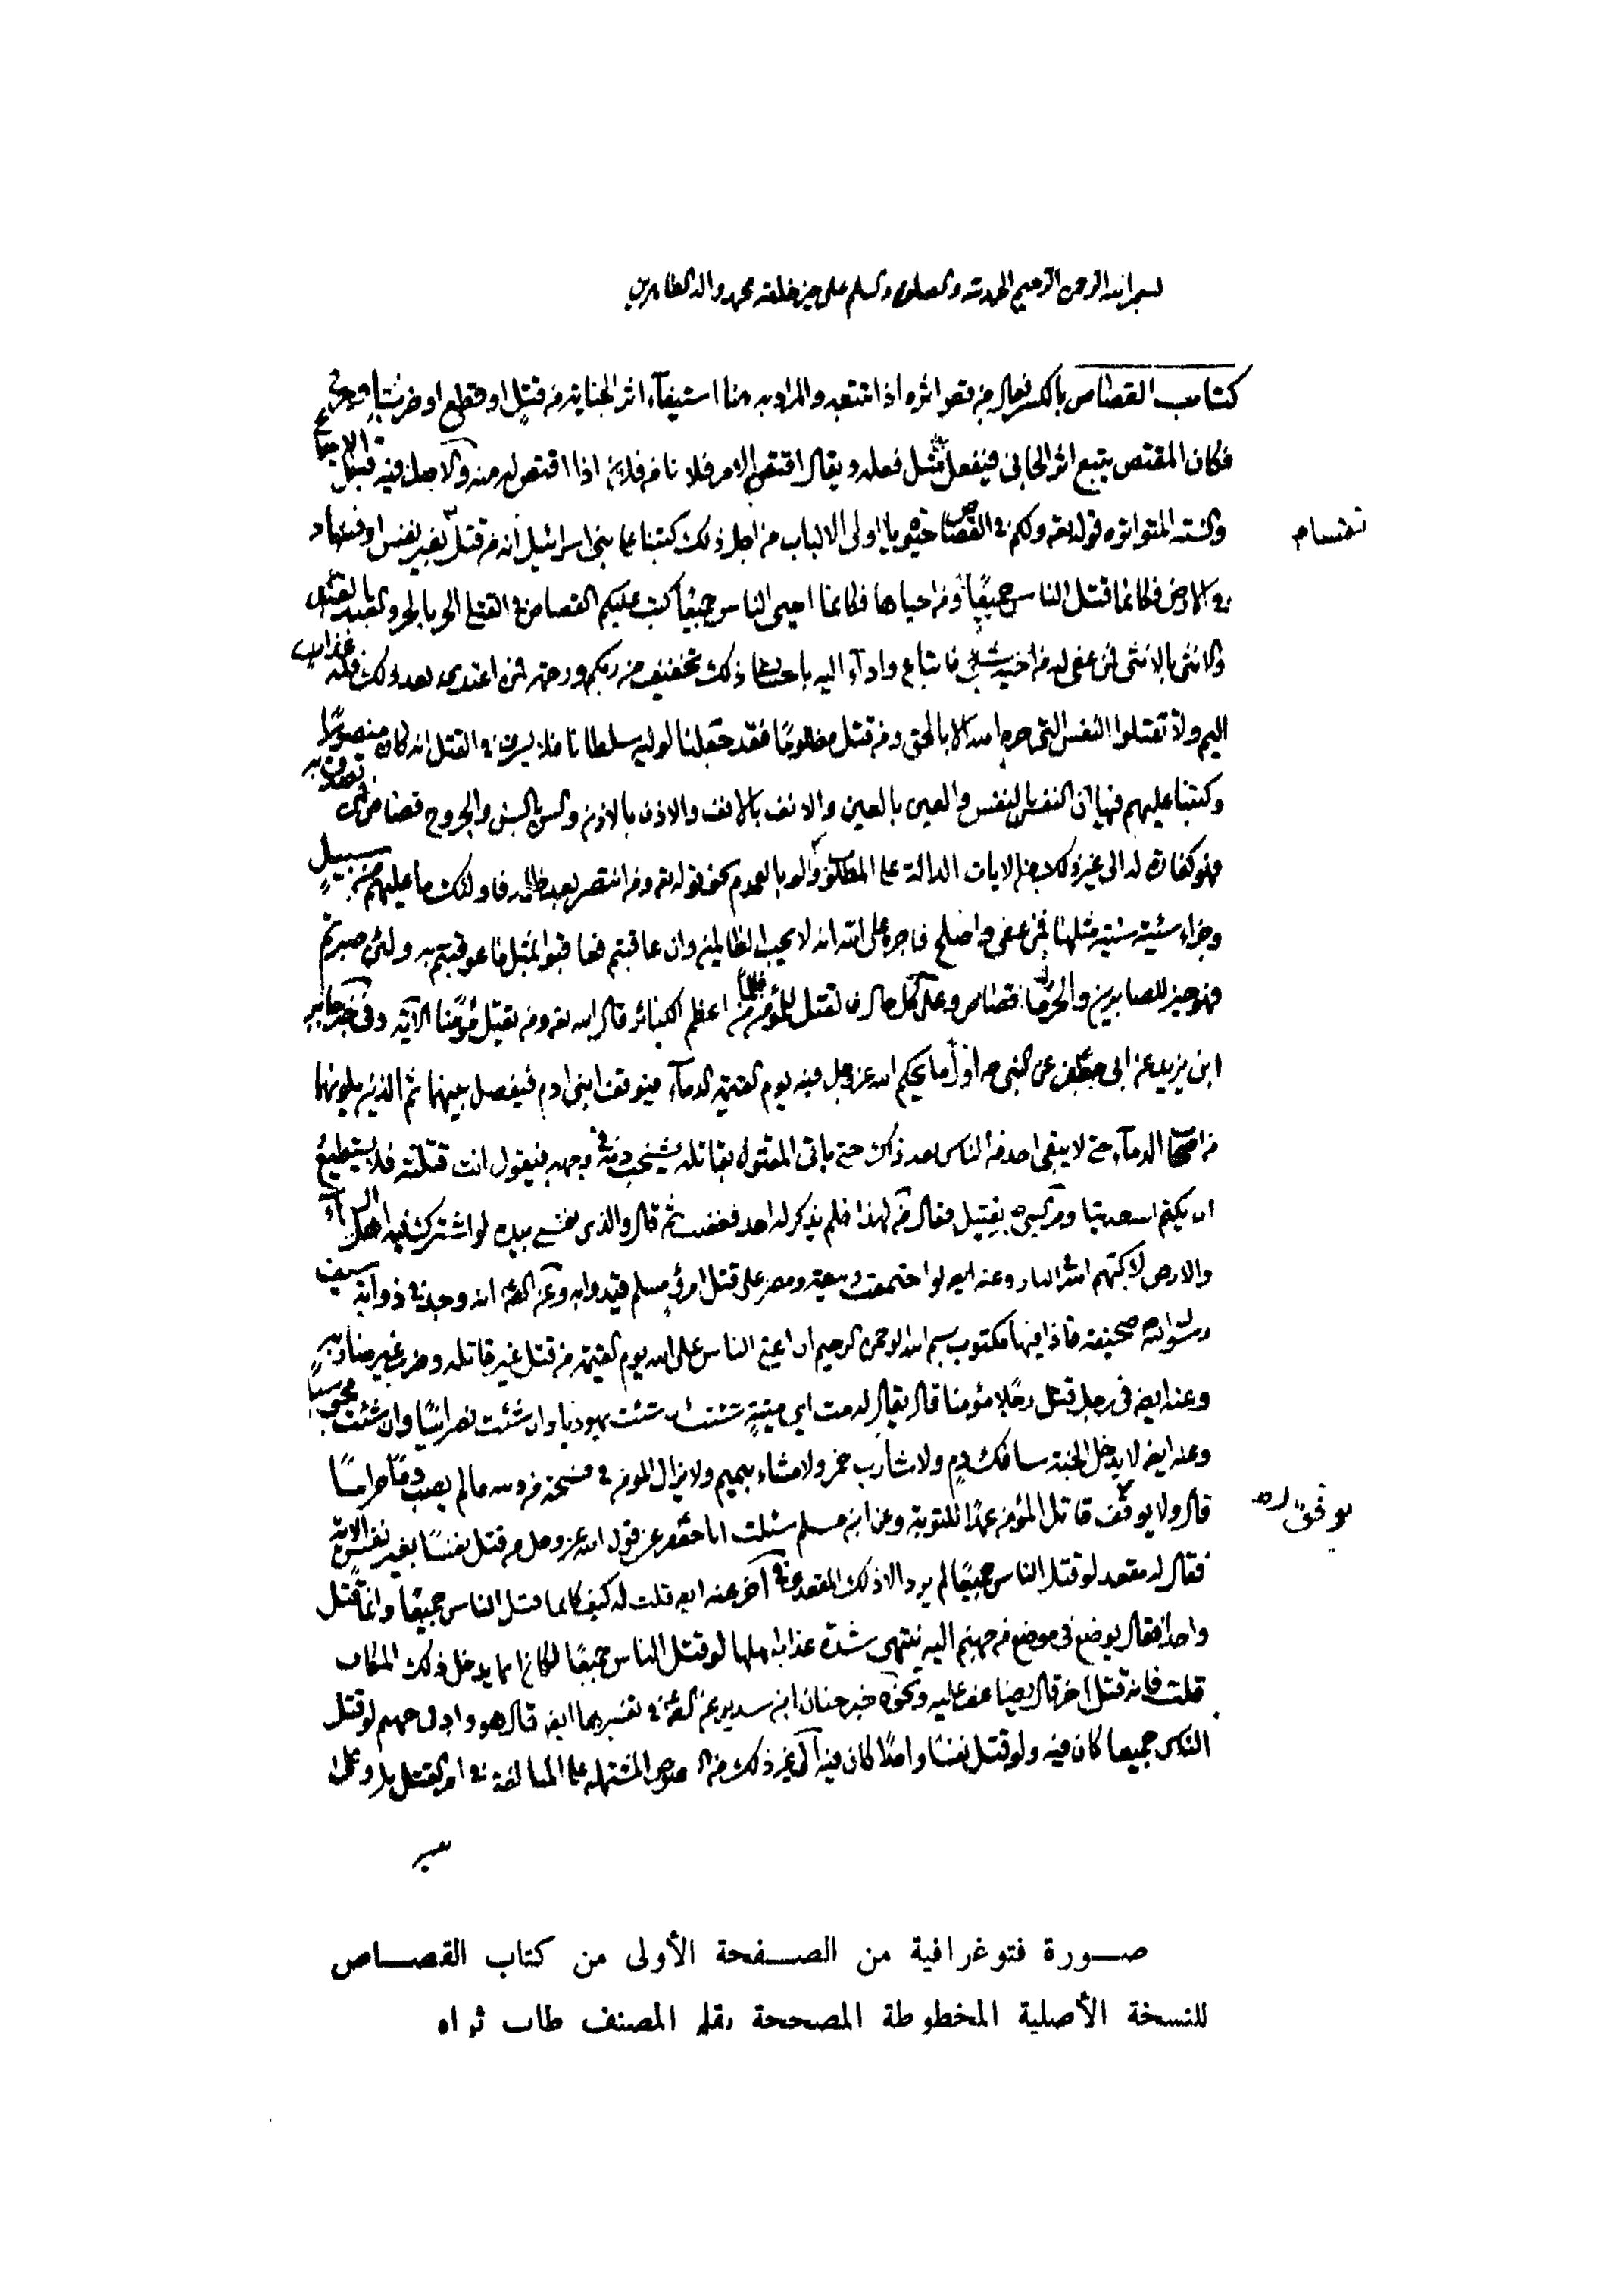 بسم الله الرحمن الرحيم الحمد لله والصلوة والسلم على خير خلقه محمد واله الطاهرين
كتاب القصاص بالكسر فعال من قص اثره اذا تتبعه والمراد به هنا استيفاء اثر الجناية من قتل او قطع او ضرب او جرح
فكان المقتص يتبع اثر الجاني فيفعل مثل فعله ويقال اقتص الامير فلانا من فلان اذا اقتص له منه والاصل فيه قبل الاجماع
والسنة المتواترة قوله تعه ولكم في القصاص حيوة يا اولى الالباب من اجل ذلك كتبنا على بنى اسرائيل انه من قتل نفسا بغير نفس او فساد
في الارض فكانما قتل الناس جميعًا ومن احياها فكانما احيى الناس جميعًا كتب عليكم القصاص في القتلى الحر بالحر والعبد بالعبد
والانثى بالانثى فمن عفى له من اخيه شئ فاتباع واداء اليه باحسان ذلك تخفيف من ربكم ورحمة فمن اعتدى بعد ذلك فله عذاب
اليم ولا تقتلوا النفس التى حرم الله الا بالحق ومن قتل مظلومًا فقد جعلنا لوليه سلطانا فلا يسرف في القتل انه كان منصورًا
وكتبنا عليهم فيها ان النفس بالنفس والعين بالعين والانف بالانف والاذن بالاذن والسن بالسن والجروح قصاص فمن تصدق به
فهو كفارة له الى غير ذلك من الايات الدالة على المطلوب ولو بالعموم كقوله تعه ومن انتصر بعد ظلمه فاولئك ما عليهم من سبيل
وجزاء سيئة سيئة مثلها فمن عفى واصلح فاجره على الله انه لا يحب الظالمين وان عاقبتم فعاقبوا بمثل ما عوقبتم به ولئن صبرتم
فهو خير للصابرين والحرمات قصاص وعلى كل حال فالقتل للمؤمن ظلمًا من اعظم الكبائر قال الله تعه ومن يقتل مؤمنا الآية وفي خبر جابر
ابن يزيد عن ابى جعفر عن النبي ص اول ما يحكم الله عز وجل فيه يوم القيمة الدماء فيوقف ابنى ادم فيفصل بينهما ثم الذين يلونهما
من اصحاب الدماء حتى لا يبقى احد من الناس بعد ذلك حتى ياتى المقتول بقاتله يشخب دمه في وجهه فيقول انت قتلته فلا يستطيع
ان يكتم الله حديثا بقتيل فقال من لهذا فلم يذكر له احد فغضب ثم قال والذى نفسى بيده لو اشترك فيه اهل السماء
والارض لاكبهم الله في النار وعنه ايضه لو اجتمعت ربيعة ومضر على قتل امرئ مسلم قيدوا به انه وجد في ذوابة سيف
رسول الله صحيفة فاذا فيها مكتوب بسم الله الرحمن الرحيم ان اعتى الناس على الله يوم القيمة من قتل غير قاتله وضرب غير ضاربه
وعنه ايضه في رجل قتل رجلا مؤمنا قال يقال له مت اى ميتة شئت ان شئت يهوديا وان شئت نصرانيًا وان شئت مجوسيا
وعنه ايضه لا يدخل الجنة سافك دم ولا شارب خمر ولا مشاء بنميم ولا يزال المومن في فسحة من دينه ما لم يصب دمًا حرامًا
قال ولا يوفق قاتل المؤمن عمدًا للتوبة وعن ابن مسلم سئلت ابا جعفر عن قول الله عز وجل من قتل نفسًا بغير نفس الاية
فقال له مقعد لو قتل الناس جميعًا لم يرد الا ذلك المقعد وفي آخر عنه ايضه قلت له كيف كانما قتل الناس جميعًا وانما قتل
واحدا فقال يوضع في موضع من جهنم اليه ينتهى شدة عذاب اهلها لو قتل الناس جميعًا لكان انما يدخل ذلك المكان
قلت فانه قتل اخر قال يضاعف عليه ونحوه خبر حنان ابن سدير في تفسيرها ايضه قال هو واد في جهنم لو قتل
الناس جميعا كان فيه ولو قتل نفسًا واحدًا كان فيه الى غير ذلك من النصوص المشتملة على المبالغة في امر القتل بل وعلى
يوفق له
صورة فتوغرافية من الصفحة الأولى من كتاب القصاص
للنسخة الأصلية المخطوطة المصححة بقلم المصنف طاب ثراه